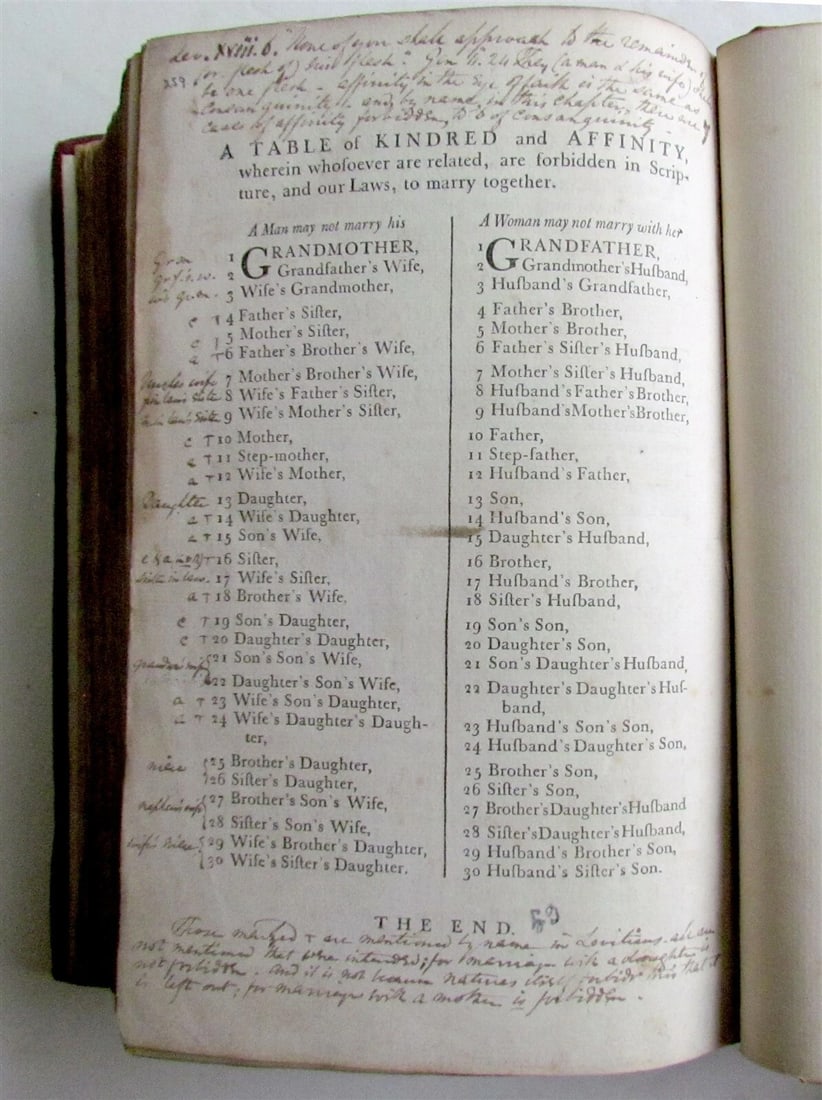 Lev. XVIII. 6. "None of you shall approach to the remainder
(or flesh of) his flesh". Gen. II. 24 They (a man & his wife) shall
259
be one flesh - affinity in the Eye of is the same as
Consanguinity. and, by name, in this chapter, there are
cases of affinity forbidden, to 6 of consanguinity -
A TABLE of KINDRED and AFFINITY,
wherein whoſoever are related, are forbidden in Scrip-
ture, and our Laws, to marry together.
A Man may not marry his
1 GRANDMOTHER,
2 Grandfather's Wife,
3 Wife's Grandmother,
c T 4 Father's Siſter,
c T 5 Mother's Siſter,
a T 6 Father's Brother's Wife,
Uncles wife 7 Mother's Brother's Wife,
8 Wife's Father's Siſter,
9 Wife's Mother's Siſter,
c T 10 Mother,
a T 11 Step-mother,
a T 12 Wife's Mother,
Daughter 13 Daughter,
a T 14 Wife's Daughter,
a T 15 Son's Wife,
T 16 Siſter,
Sister in law. 17 Wife's Siſter,
a T 18 Brother's Wife.
c T 19 Son's Daughter,
c T 20 Daughter's Daughter,
21 Son's Son's Wife,
22 Daughter's Son's Wife,
a T 23 Wife's Son's Daughter,
a T 24 Wife's Daughter's Daugh-
ter,
niece 25 Brother's Daughter,
26 Siſter's Daughter,
nephew's wife 27 Brother's Son's Wife,
28 Siſter's Son's Wife,
wife's niece 29 Wife's Brother's Daughter,
30 Wife's Siſter's Daughter.
A Woman may not marry with her
1 GRANDFATHER,
2 Grandmother's Huſband,
3 Huſband's Grandfather,
4 Father's Brother,
5 Mother's Brother,
6 Father's Siſter's Huſband,
7 Mother's Siſter's Huſband,
8 Huſband's Father's Brother,
9 Huſband's Mother's Brother,
10 Father,
11 Step-father,
12 Huſband's Father,
13 Son,
14 Huſband's Son,
15 Daughter's Huſband,
16 Brother,
17 Huſband's Brother,
18 Siſter's Huſband,
19 Son's Son,
20 Daughter's Son,
21 Son's Daughter's Huſband,
22 Daughter's Daughter's Huſ-
band,
23 Huſband's Son's Son,
24 Huſband's Daughter's Son,
25 Brother's Son,
26 Siſter's Son,
27 Brother's Daughter's Huſband
28 Siſter's Daughter's Huſband,
29 Huſband's Brother's Son,
30 Huſband's Siſter's Son.
THE END.
Those marked T are mentioned by name in Leviticus.
not mentioned that were intended; for marriage with a daughter is
not forbidden. And it is not because nature itself forbids this that it
is left out; for marriage with a mother is forbidden.